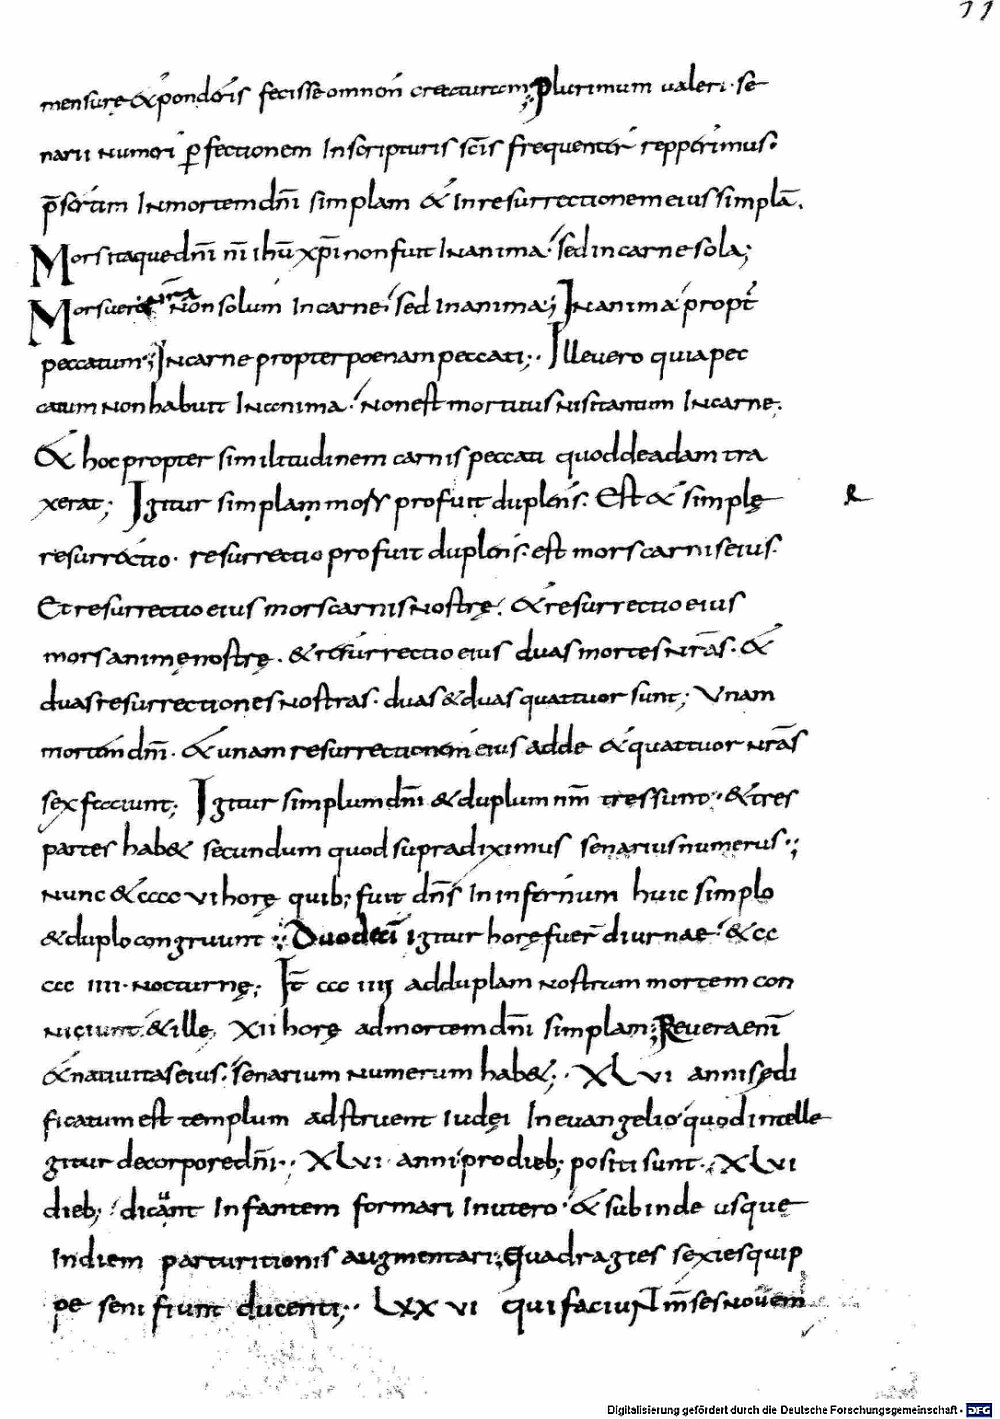 11
mensurę & ponderis fecisse omnem creaturam; Plurimum valeri se
narii numeri p̄fectionem In scripturis sc̄is frequenter repperimus.
p̄sertim In mortem dn̄i simplam & In resurrectionem eius simplā.
Mors itaque dn̄i nr̄i ihū xp̄i non fuit In anima. sed in carne sola;
Mors vero nr̄a Non solum In carne. sed In anima; In anima propt̄
peccatum; In carne propter poenam peccati;. Ille vero quia pec
catum non habuit In anima. non est mortuus nisi tantum In carne.
& hoc propter similitudinem carnis peccati quod de adam tra
xerat; Igitur simplam mors profuit duplę nr̄is. Est & simplę
resurrectio. resurrectio profuit duplę nr̄is. est mors carnis eius.
Et resurrectio eius mors carnis nostrę. & resurrectio eius
mors animę nostrę. & resurrectio eius duas mortes nr̄as. &
duas resurrectiones nostras. duas & duas quattuor sunt; Vnam
mortem dn̄i. & unam resurrectionem eius adde & quattuor nr̄as
sex faciunt; Igitur simplum dn̄i & duplum nr̄m tres sunt. & tres
partes hab& secundum quod supra diximus senarius numerus.;
Nunc & xxxvi horę quib; fuit dn̄s In infernum huic simplo
& duplo congruunt; Duodeci igitur horę fuer̄ diurnae. & xx
iiii. nocturnę; It̄ xx iiii ad duplam nostram mortem con
veniunt. & illę XII horę ad mortem dn̄i simplam; Revera eni
& nativitas eius. senarium numerum hab&;. XLVI annis ędi
ficatum est templum adstruent iudei In evangelio quod intelle
gitur de corpore dn̄i;. XLVI anni pro dieb; positi sunt.; XLVI
dieb; dicunt Infantem formari In utero. & subinde usque
In diem parturitionis augmentari; Quadragies sexies quip
pe seni fiunt ducenti;. LXXVI qui faciunt m̄ses novem
Digitalisierung gefördert durch die Deutsche Forschungsgemeinschaft - DFG